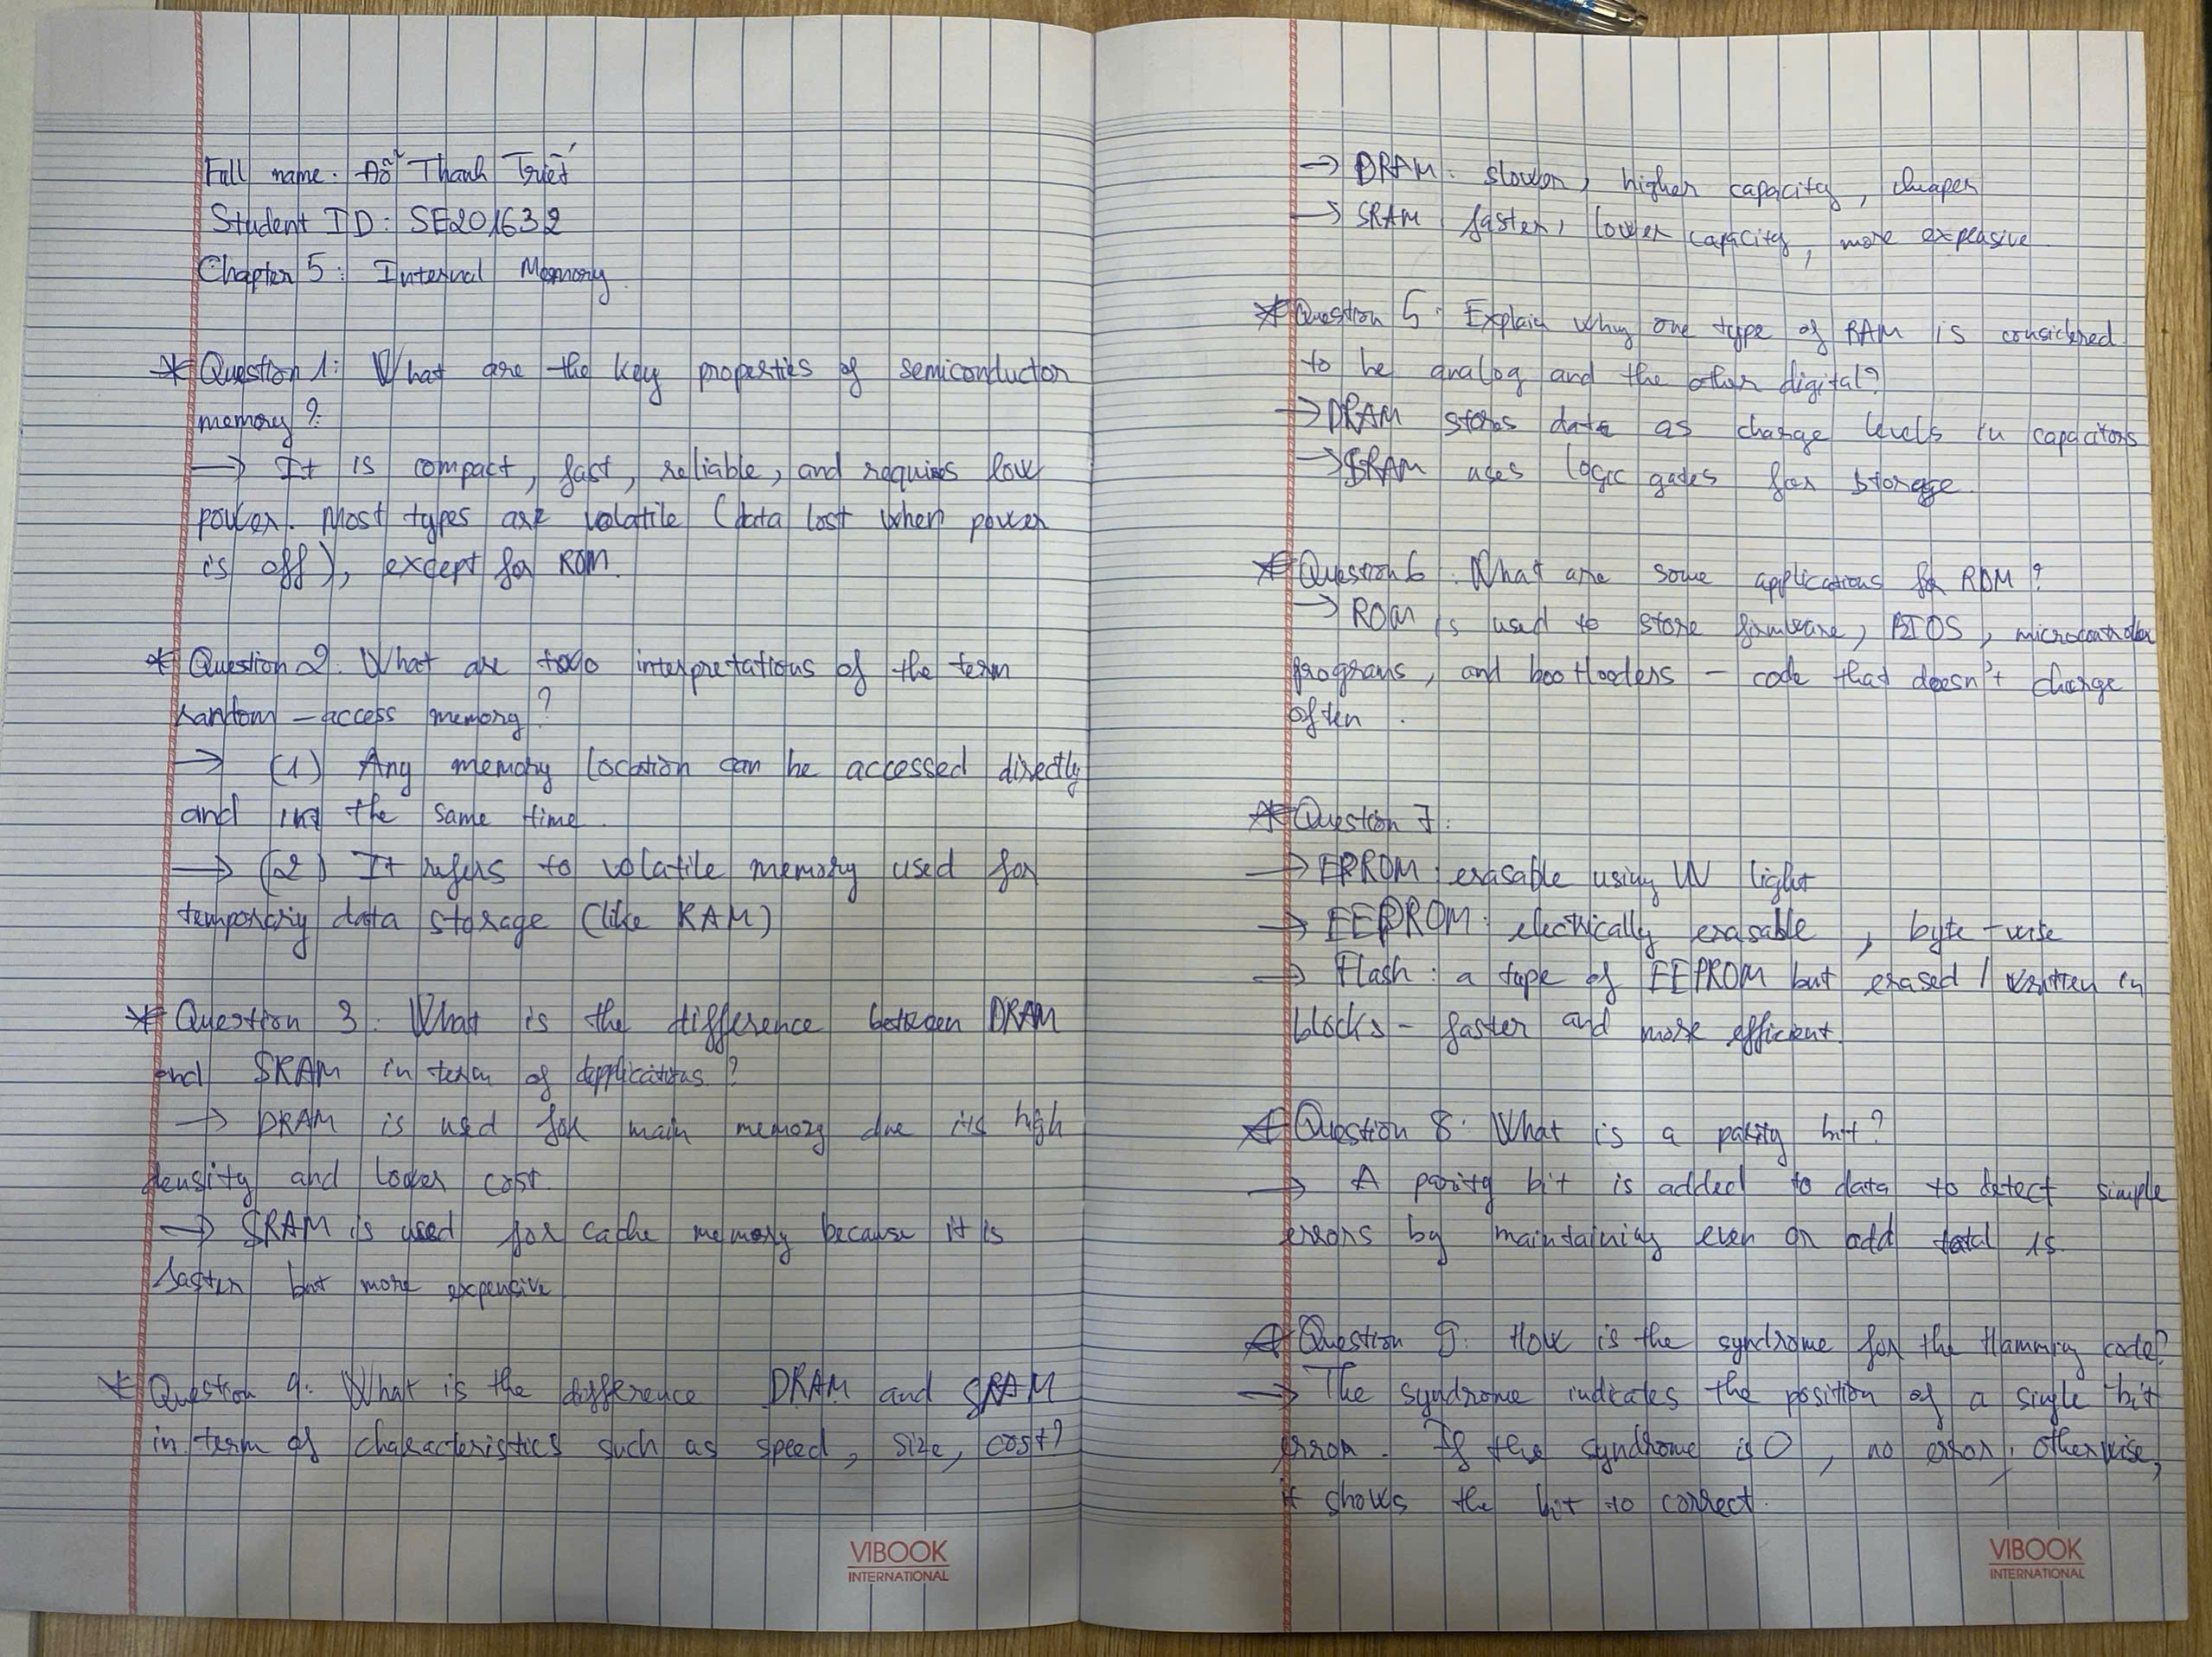 Full name: Đỗ Thanh Triết
Student ID: SE201632
Chapter 5: Internal Memory
* Question 1: What are the key properties of semiconductor
memory?
→ It is compact, fast, reliable, and requires low
power. Most types are volatile (data lost when power
is off), except for ROM.
* Question 2: What are two interpretations of the term
random-access memory?
→ (1) Any memory location can be accessed directly
and in the same time.
→ (2) It refers to volatile memory used for
temporary data storage (like RAM)
* Question 3: What is the difference between DRAM
and SRAM in term of applications?
→ DRAM is used for main memory due its high
density and lower cost.
→ SRAM is used for cache memory because it is
faster but more expensive
* Question 4: What is the difference DRAM and SRAM
in term of characteristics such as speed, size, cost?
VIBOOK
INTERNATIONAL
→ DRAM: slower, higher capacity, cheaper
→ SRAM faster, lower capacity, more expensive
* Question 5: Explain why one type of RAM is considered
to be analog and the other digital?
→ DRAM stores data as charge levels in capacitors
→ SRAM uses logic gates for storage.
* Question 6: What are some applications for ROM?
→ ROM is used to store firmware, BIOS, microcontroller
programs, and bootloaders - code that doesn't change
often.
* Question 7:
→ EPROM: erasable using UV light
→ EEPROM: electrically erasable, byte-wise
→ Flash: a type of EEPROM but erased / written in
blocks - faster and more efficient.
* Question 8: What is a parity bit?
→ A parity bit is added to data to detect simple
errors by maintaining even or odd total 1s.
* Question 9: How is the syndrome for the Hamming code?
→ The syndrome indicates the position of a single bit
error. If the syndrome is 0, no error; otherwise,
it shows the bit to correct.
VIBOOK
INTERNATIONAL